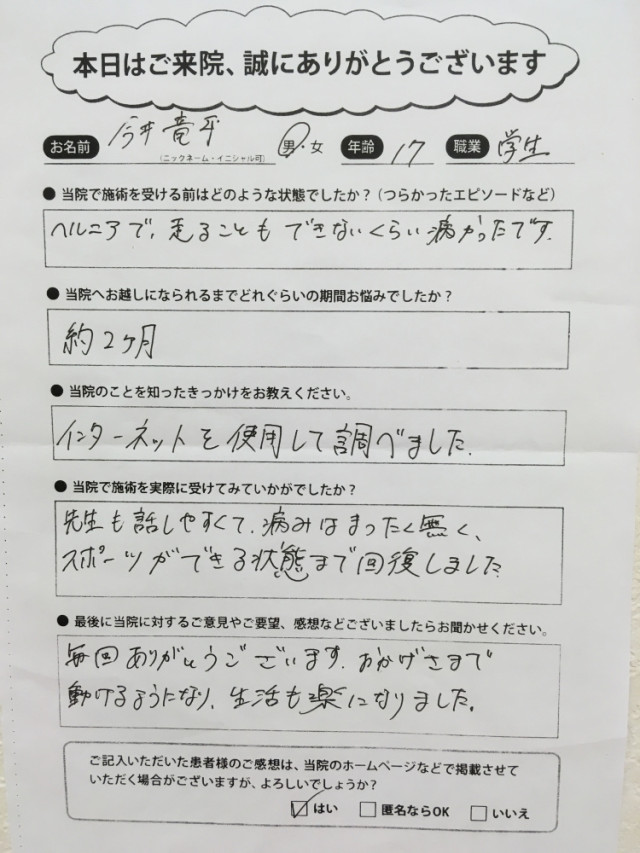 本日はご来院、誠にありがとうございます
お名前 今井 竜平 男・女 年齢 17 職業 学生
(ニックネーム・イニシャル可)
● 当院で施術を受ける前はどのような状態でしたか？(つらかったエピソードなど)
ヘルニアで、走ることもできないくらい痛かったです.
● 当院へお越しになられるまでどれぐらいの期間お悩みでしたか？
約2ヶ月
● 当院のことを知ったきっかけをお教えください。
インターネットを使用して調べました.
● 当院で施術を実際に受けてみていかがでしたか？
先生も話しやすくて、痛みはまったく無く、
スポーツができる状態まで回復しました
● 最後に当院に対するご意見やご要望、感想などございましたらお聞かせください。
毎回ありがとうございます. おかげさまで
動けるようになり、生活も楽になりました。
ご記入いただいた患者様のご感想は、当院のホームページなどで掲載させて
いただく場合がございますが、よろしいでしょうか？
☑ はい □ 匿名ならOK □ いいえ